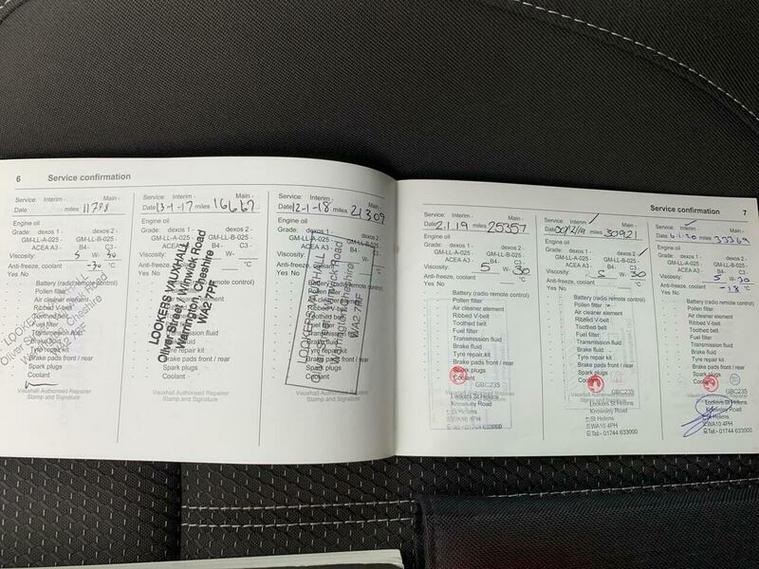 6 Service confirmation
Service: Interim - Main -
Date miles 11798
Engine oil
Grade: dexos 1 - dexos 2 -
GM-LL-A-025 - GM-LL-B-025 -
ACEA A3 - B4 - C3 -
Viscosity: 5 W- 30
Anti-freeze, coolant -30 °C
Yes No
Battery (radio remote control)
Pollen filter
Air cleaner element
Ribbed V-belt
Toothed belt
Fuel filter
Transmission fluid
Brake fluid
Tyre repair kit
Brake pads front / rear
Spark plugs
Coolant
Vauxhall Authorised Repairer
Stamp and Signature
Service: Interim - Main -
Date 13-1-17 miles 16667
Engine oil
Grade: dexos 1 - dexos 2 -
GM-LL-A-025 - GM-LL-B-025 -
ACEA A3 - C3 -
Viscosity: W-
Anti-freeze, coolant °C
Yes No
LOOKERS VAUXHALL
Oliver Street / Winwick Road
Warrington, Cheshire
WA2 7PF
Spark plugs
Coolant
Vauxhall Authorised Repairer
Stamp and Signature
Service: Interim - Main -
Date 12-1-18 miles 21309
Engine oil
Grade: dexos 1 - dexos 2 -
GM-LL-A-025 - GM-LL-B-025 -
ACEA A3 - B4 - C3 -
Viscosity: W-
Anti-freeze, coolant °C
Yes No
LOOKERS VAUXHALL
Warrington, Cheshire
WA2 7PF
Tyre repair kit
Brake pads front / rear
Spark plugs
Coolant
Vauxhall Authorised Repairer
Stamp and Signature
Service confirmation 7
Service: Interim - Main -
Date 2.1.19 miles 25357
Engine oil
Grade: dexos 1 - dexos 2 -
GM-LL-A-025 - GM-LL-B-025 -
ACEA A3 - B4 - C3 -
Viscosity: 5 W- 30
Anti-freeze, coolant °C
Yes No
Battery (radio remote control)
Pollen filter
Air cleaner element
Ribbed V-belt
Toothed belt
Fuel filter
Transmission fluid
Brake fluid
Tyre repair kit
Brake pads front / rear
Spark plugs
Coolant
GBC235
Lookers St Helens
Knowsley Road
St Helens
WA10 4PH
Tel:- 01744 633000
Service: Interim Main -
Date miles 30921
Engine oil
Grade: dexos 1 - dexos 2
GM-LL-A-025 - GM-LL-B-025 -
ACEA A3 - B4 - C3 -
Viscosity: 5 W- 30
Anti-freeze, coolant °C
Yes No
Battery (radio remote control)
Pollen filter
Air cleaner element
Ribbed V-belt
Toothed belt
Fuel filter
Transmission fluid
Brake fluid
Tyre repair kit
Brake pads front / rear
Spark plugs
Coolant
GBC235
Lookers St Helens
Knowsley Road
St Helens
WA10 4PH
Tel:- 01744 633000
Service: Interim - Main -
Date miles
Engine oil
Grade: dexos 1 - dexos 2 -
GM-LL-A-025 - GM-LL-B-025 -
ACEA A3 - B4 - C3 -
Viscosity: 5 W- 30
Anti-freeze, coolant -18 °C
Yes No
Battery (radio remote control)
Pollen filter
Air cleaner element
Ribbed V-belt
Toothed belt
Fuel filter
Transmission fluid
Brake fluid
Tyre repair kit
Brake pads front / rear
Spark plugs
Coolant
GBC235
Lookers St Helens
Knowsley Road
St Helens
WA10 4PH
Tel:- 01744 633000